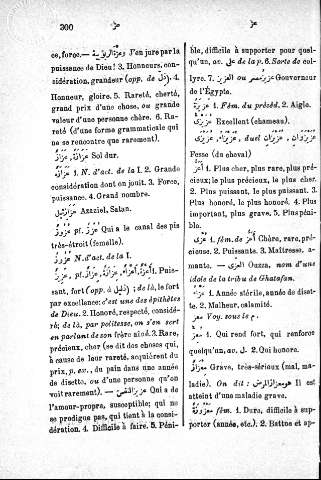 300
عز
عز
ce, force.— وعزّة الربوبيّة J'en jure par la
puissance de Dieu! 3. Honneurs, con-
sidération, grandeur (opp. de ذلّ). 4.
Honneur, gloire. 5. Rareté, cherté,
grand prix d'une chose, ou grande
valeur d'une personne chère. 6. Ra-
reté (d'une forme grammaticale qui
ne se rencontre que rarement).
Sol dur.
1. N. d'act. de la I. 2. Grande
considération dont on jouit. 3. Force,
puissance. 4. Grand nombre.
عزازيل Azaziel, Satan.
pl. Qui a le canal des pis
très-étroit (femelle).
N. d'act. de la I.
عزيز, pl. 1. Puis-
sant, fort (opp. à ذليل); de là, le fort
par excellence: c'est une des épithètes
de Dieu. 2. Honoré, respecté, considé-
ré; de là, par politesse, on s'en sert
en parlant de son frère aîné. 3. Rare,
précieux, cher (se dit des choses qui,
à cause de leur rareté, acquièrent du
prix, p. ex., du pain dans une année
de disette, ou d'une personne qu'on
voit rarement).— عزيز النفس Qui a de
l'amour-propre, susceptible; qui ne
se prodigue pas, qui tient à la consi-
dération. 4. Difficile à faire. 5. Péni-
ble, difficile à supporter pour quel-
qu'un, av. على de la p. 6. Sorte de col-
lyre. 7. العزيز ou عزيز مصر Gouverneur
de l'Égypte.
عزيزة 1. Fém. du précéd. 2. Aigle.
Excellent (chameau).
duel
Fesse (du cheval)
أعزّ 1. Plus cher, plus rare, plus pré-
cieux; le plus précieux, le plus cher.
2. Plus puissant, le plus puissant. 3.
Plus honoré, le plus honoré. 4. Plus
important, plus grave. 5. Plus péni-
ble.
عزّى 1. fém. de أعزّ Chère, rare, pré-
cieuse. 2. Puissante. 3. Maîtresse, a-
mante. — العزّى Ouzza, nom d'une
idole de la tribu de Ghatafan.
1. Année stérile, année de diset-
te. 2. Malheur, calamité.
Voy. sous le م.
1. Qui rend fort, qui renforce
quelqu'un, av. ل. 2. Qui honore.
Grave, très-sérieux (mal, ma-
ladie). On dit: هو معزاز المرض Il est
atteint d'une maladie grave.
معزوزة fém. 1. Dure, difficile à sup-
porter (année, etc.). 2. Battue et ap-